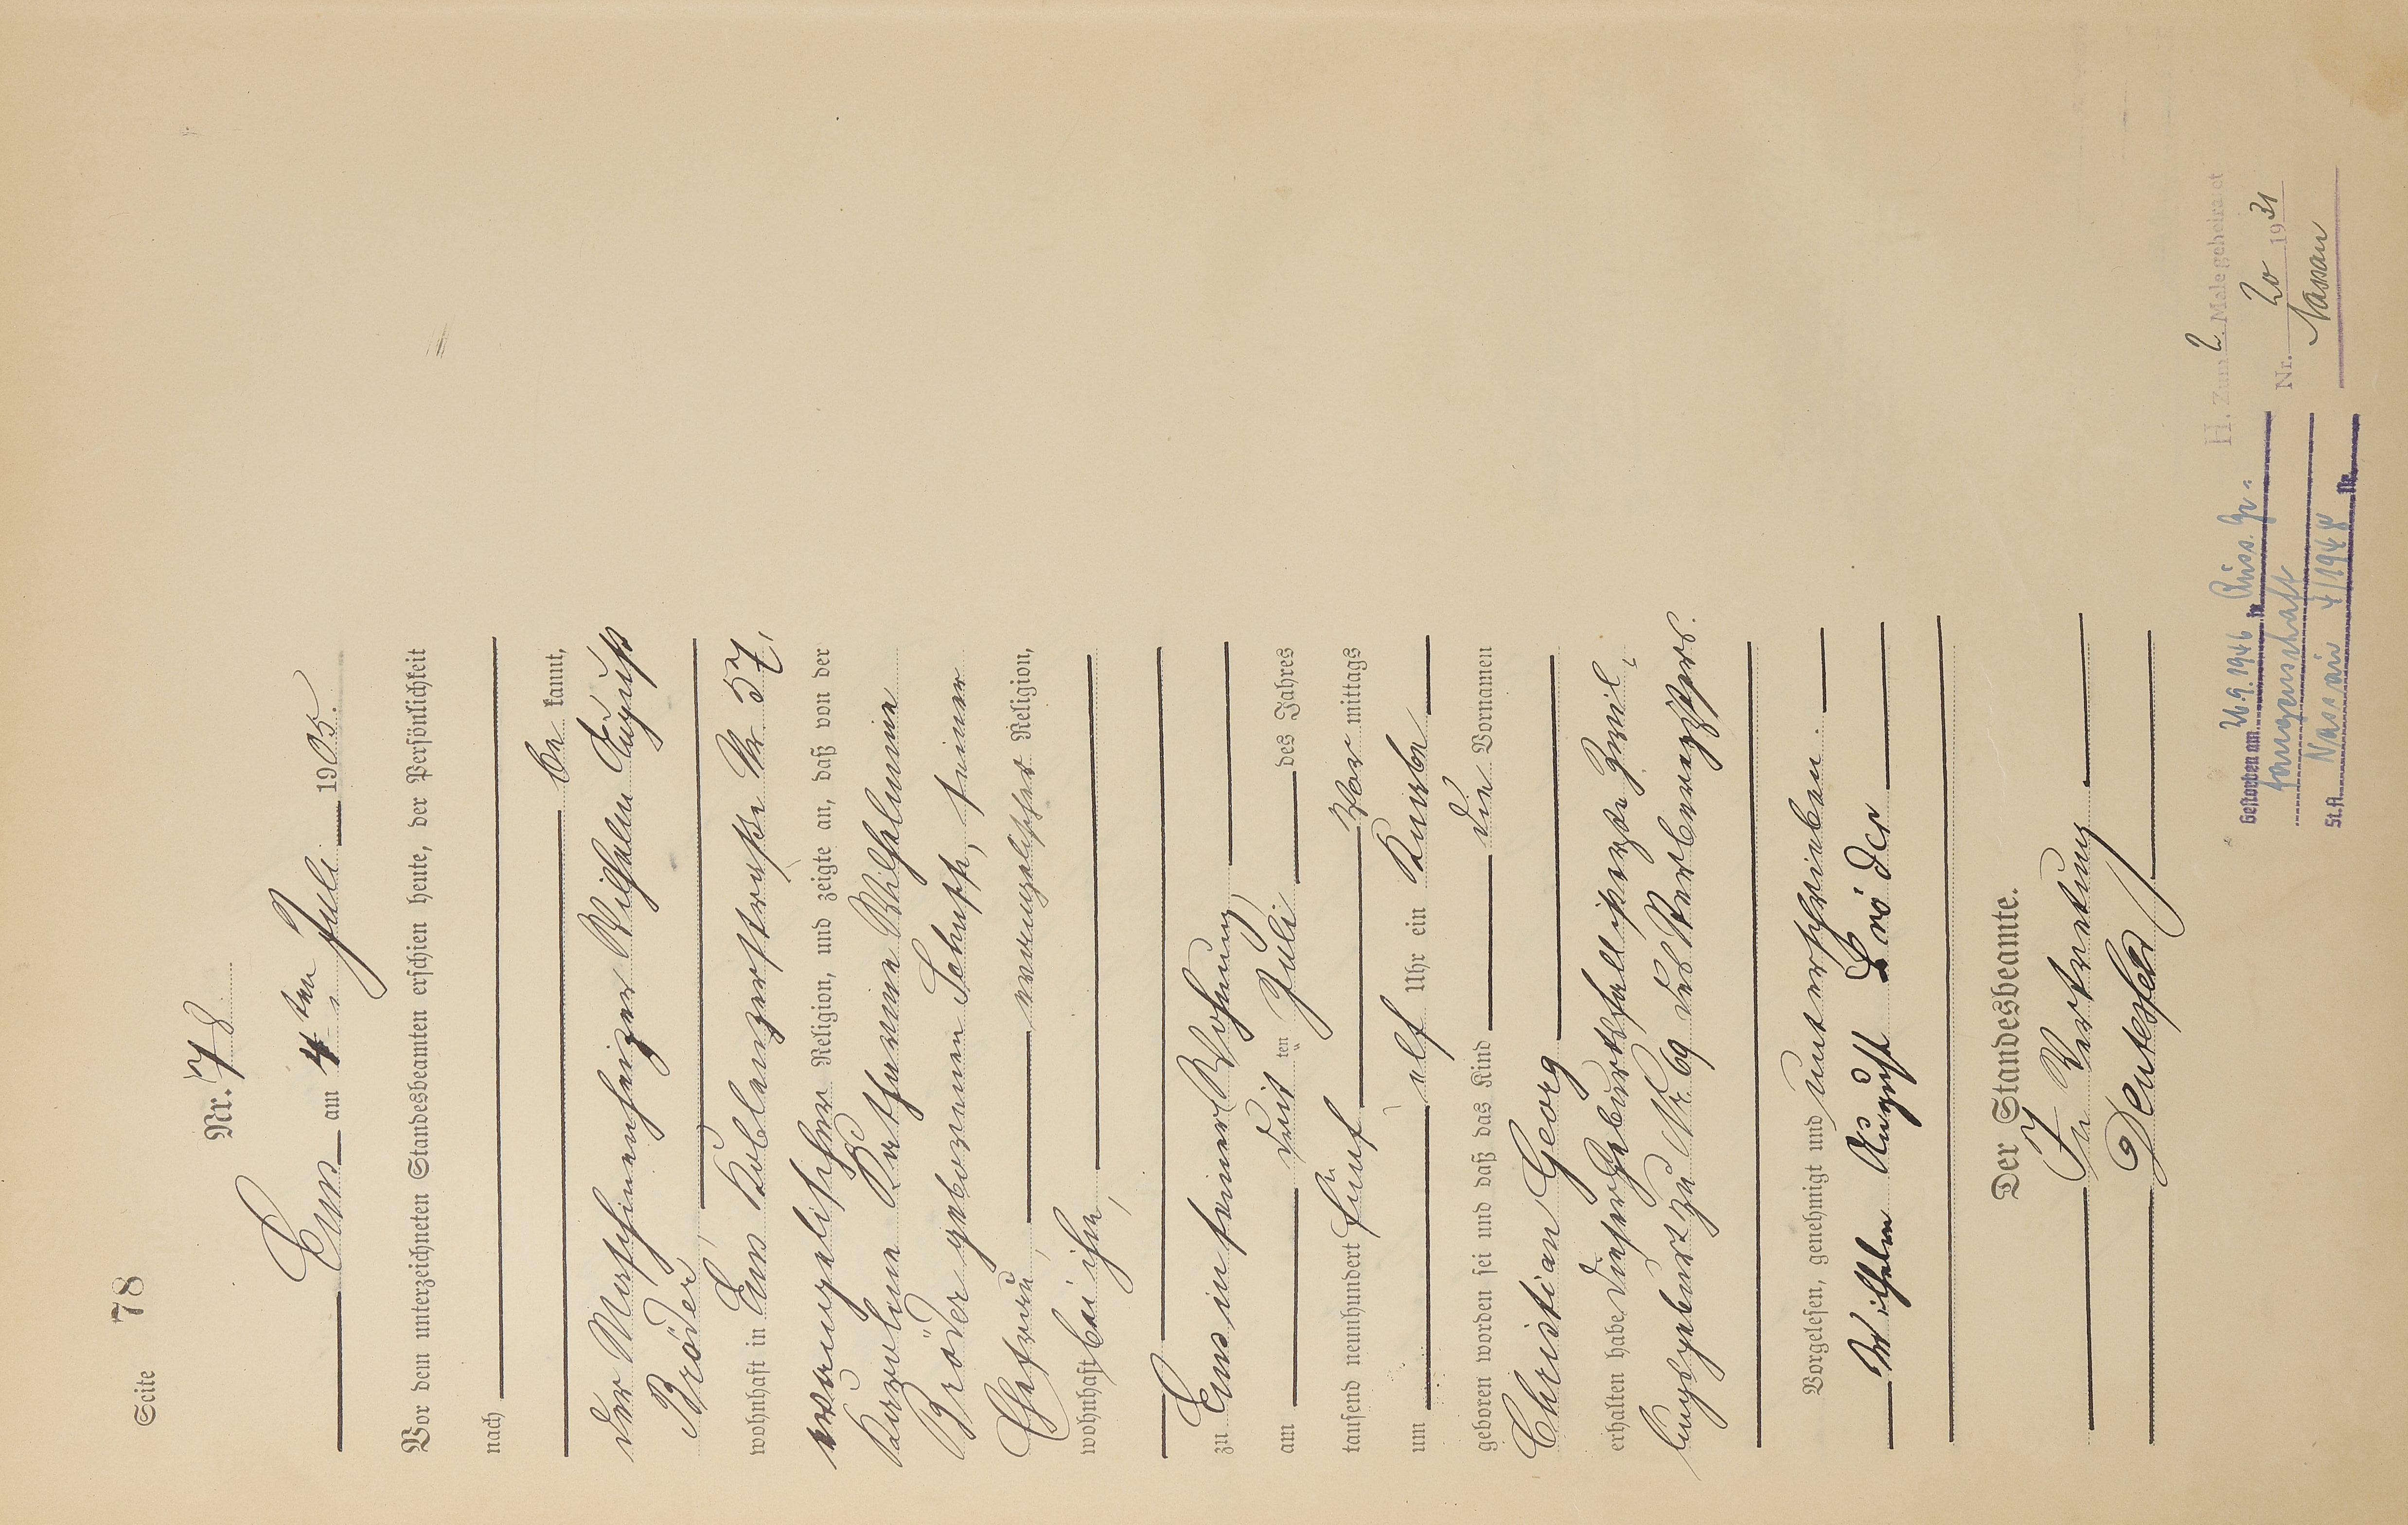 Seite 78
Nr. 78.
Ems am 4ten Juli 1905.
Vor dem unterzeichneten Standesbeamten erschien heute, der Persönlichkeit
nach
be kannt,
der Maschinenheizer Wilhelm August
Bröder,
wohnhaft in Ems Koblenzerstraße Nr 57,
evangelischer Religion, und zeigte an, daß von der
Karoline Katharine Wilhelmine
Bröder geborenen Schutt, seiner
Ehefrau, evangelischer Religion,
wohnhaft bei ihm,
zu Ems in seiner Wohnung,
am drit ten Juli des Jahres
tausend neunhundert fünf Vor mittags
um elf Uhr ein Knabe
geboren worden sei und daß das Kind die Vornamen
Christian Georg
erhalten habe. Dieser Geburtsfall ist erste Zwil-
lingsgeburt zu Nr. 69 des
Vorgelesen, genehmigt und unterschrieben.
Wilhelm August Bröder
Der Standesbeamte.
In Vertretung
H. Zum 2. Male geheiratet
Nr. 20 1931
Nassau
Gestorben am 20.9.1946 in Russ. Ge-
fangenschaft
St.A. Nassau 4/1948 Nr.